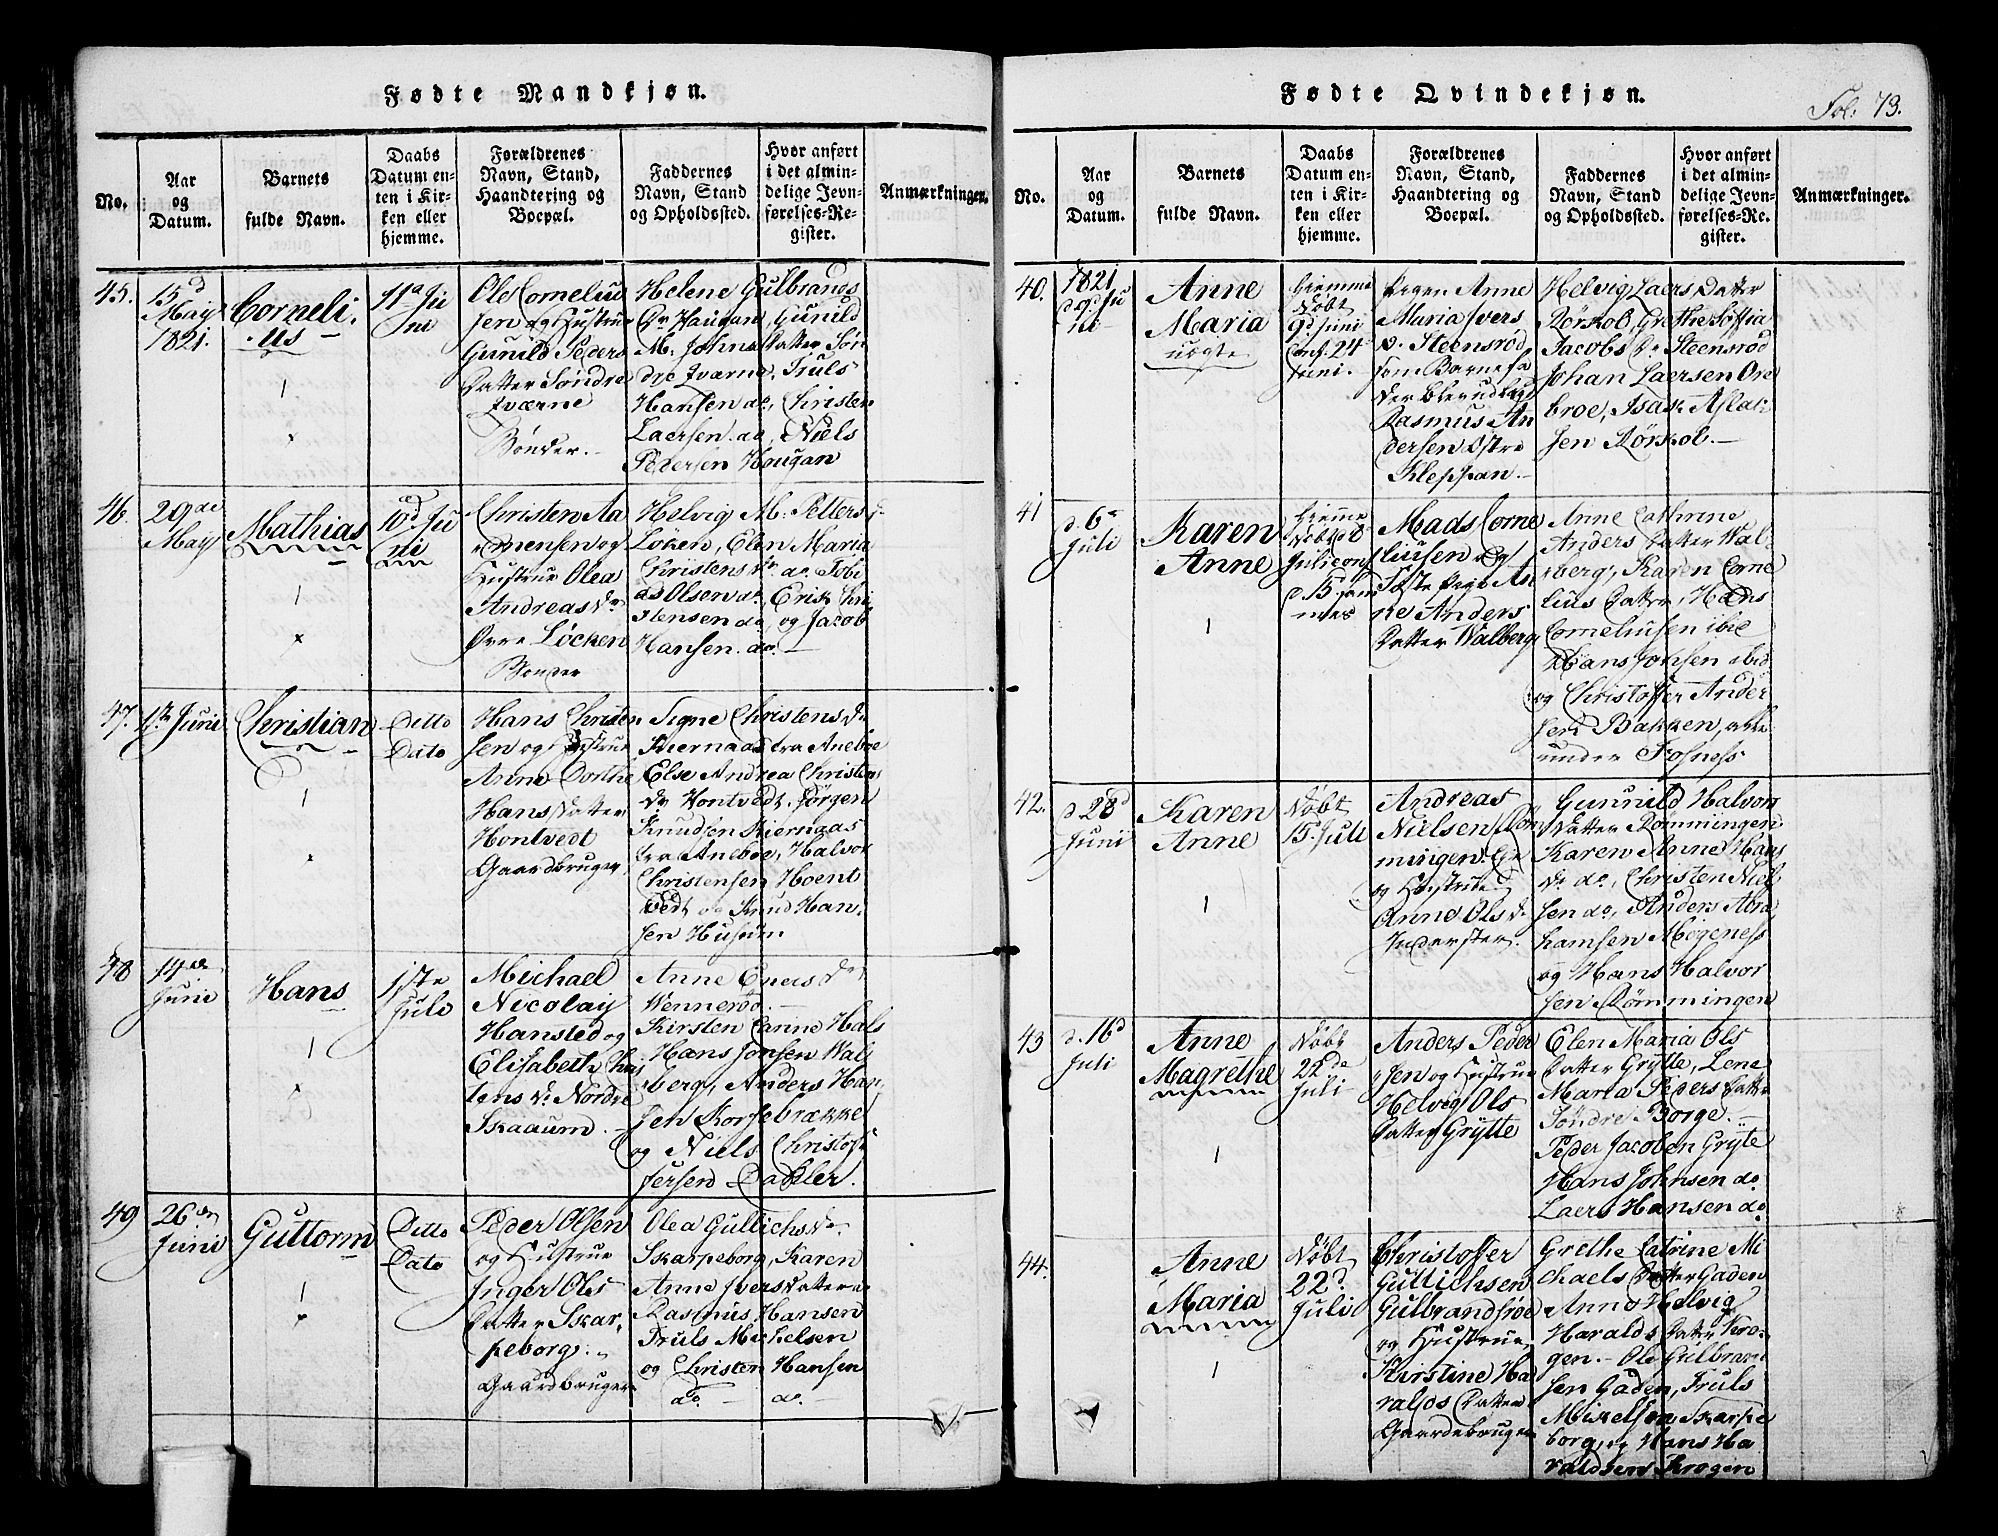 Fødte Mandkjøn.
No.
Aar
og
Datum.
Barnets
fulde Navn.
Daabs
Datum en-
ten i Kir-
ken eller
hjemme.
Forældrenes
Navn, Stand,
Haandtering og
Boepæl.
Faddernes
Navn, Stand
og Opholdssted.
Hvor anført
i det almin-
delige Jevn-
førelses-Re-
gister.
Anmærkninger.
45.
15d
May
1821.
Corneli-
us
1
11a Ju
ni
Ole Corneliu
sen og Hustrue
Gunild Peders
Datter Søndre
Zværne
Bønder.
Helene Gulbrands
Dr Haugan, Gunild
M. Johns Datter Søn
dre Zværne. Truls
Hansen do, Christen
Laersen do, Niels
Pedersen Hougan
46.
29de
May
Mathias
1
10d Ju
ni
Christen Aa
mensen og
Hustrue Olea
Andreas Dr
Øvre Løcken
Bønder
Helvig M. Petters d.
Løken, Elen Maria
Christens dr do. Tobi
as Olsen do, Erik Chri
stensen do, og Jacob
Hansen do.
47.
Juni
Christian
1
Ditto
Dato
Hans Christen
sen og Hustrue
Anne Dorthe
Hans Datter
Hontvedt
Gaardbruger
Signe Christens dr
Kiernaas fra Aneboe
Else Andrea Christens
dr Hontvedt. Jørgen
Knudsen Kiernaas
fra Aneboe, Halvor
Christensen Hoent
vedt og Knud Han-
sen Husum.
48
14de
Juni
Hans
1
1ste
Juli
Michael
Nicolay
Hansted og
Elisabeth Chris
tens dr Nordre
Skaaum.
Anne Evers dr
Wennerød.
Kirsten Canne Hals
Hans Jonsen Wal
berg, Anders Han
sen Korsebrække
og Niels Christof
fersen Dakler.
49
26de
Juni
Guttorm
1
Ditto
Dato
Peder Olsen
og Hustrue
Inger Ols
Datter Skar-
peborg.
Gaardbruger
Olea Gullichs dr
Skarpeborg, Karen
Anne Ivers datter
Rasmus Hansen
Truls Michelsen
og Christen Hansen
do. do.
Fødte Qvindekjøn.
Fol. 73.
No.
Aar
og
Datum.
Barnets
fulde Navn.
Daabs
Datum en-
ten i Kir-
ken eller
hjemme.
Forældrenes
Navn, Stand,
Haandtering og
Boepæl.
Faddernes
Navn, Stand
og Opholdssted.
Hvor anført
i det almin-
delige Jevn-
førelses-Re-
gister.
Anmærkninger.
40.
1821
d 9d Ju
ni
Anne
Maria
uægte
Hjemme
Døbt
9d Juni
Conf. 24
Juni.
Pigen Anne
Maria Ivers
d. Steensrød
som Barnefa
der blev udlagt
Rasmus An
dersen Østre
Kleppan.
Helvig Laers Datter
Rørkol, Grethe Soffia
Jacobs Dr Steensrød
Johan Laersen Ore
broe, Isak Aslak
sen Rørkol.
41
d. 6te
Juli
Karen
Anne
1
Hjemme
Døbt d 8
Juli conf
d 15 sam
mes
Mads Corne
liusen og
Fæste Pige An
ne Anders
Datter Walberg
Anne Cathrine
Anders Datter Wal
berg, Karen Corne
lius Datter, Hans
Corneliusen ibid
Hans Jonsen ibid
og Christoffer Ander
sen Bakken,
under Fosness
42.
d 28d
Junii
Karen
Anne
1
Døbt
15. Juli
Andreas
Nielsen Røm
mingen
og Hustrue
Anne Ols d.
Inderster.
Gunnild Halvors
Datter Rømmingen
Karen Anne Hans
dr do, Christen Niel
sen do, Anders Abra
hamsen Mogeness
og Hans Halvor
sen Rømmingen
43
d. 16d
Juli
Anne
Magrethe
1
Døbt
22de
Juli
Anders Peder
sen og Hustrue
Helvig Ols
Datter Grytte
Elen Maria Ols
Datter Grytte, Lene
Maria Peders Datter
Søndre Borge.
Peder Jacobsen Grytte
Hans Johnsen do
Laers Hansen do
44.
Anne
Maria
1
Døbt
22d.
Juli
Christoffer
Gullichsen
Gulbrandsrøe
og Hustrue
Kirstine Ha
ralds Datter
Gaardebruger
Grethe Catrine Mi
chaels Datter Gaden
Anne Helvig
Haralds Datter Kro-
gen. Ole Gulbran
sen Gaden, Truls
Mikelsen Skarpe
borg, og Hans Ha
raldsen Krogen